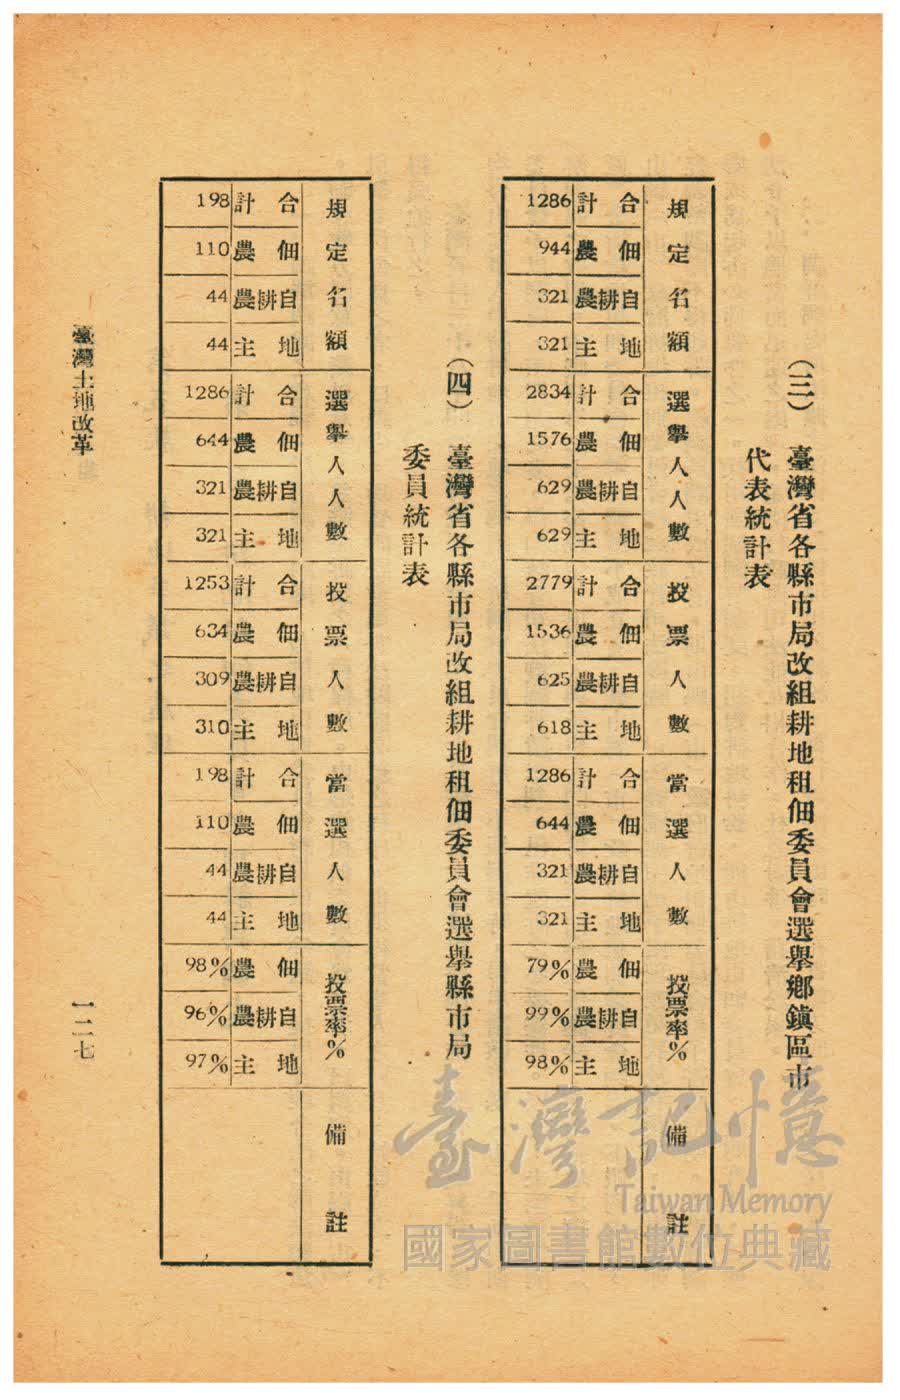 (三) 臺灣省各縣市局改組耕地租佃委員會選舉鄉鎮區市
代表統計表
規定名額 合計 1286
佃農 944
自耕農 321
地主 321
選舉人人數 合計 2834
佃農 1576
自耕農 629
地主 629
投票人數 合計 2779
佃農 1536
自耕農 625
地主 618
當選人數 合計 1286
佃農 644
自耕農 321
地主 321
投票率% 佃農 79%
自耕農 99%
地主 98%
備註
(四) 臺灣省各縣市局改組耕地租佃委員會選舉縣市局
委員統計表
規定名額 合計 198
佃農 110
自耕農 44
地主 44
選舉人人數 合計 1286
佃農 644
自耕農 321
地主 321
投票人數 合計 1253
佃農 634
自耕農 309
地主 310
當選人數 合計 198
佃農 110
自耕農 44
地主 44
投票率% 佃農 98%
自耕農 96%
地主 97%
備註
臺灣土地改革
一二七
臺灣記憶
Taiwan Memory
國家圖書館數位典藏